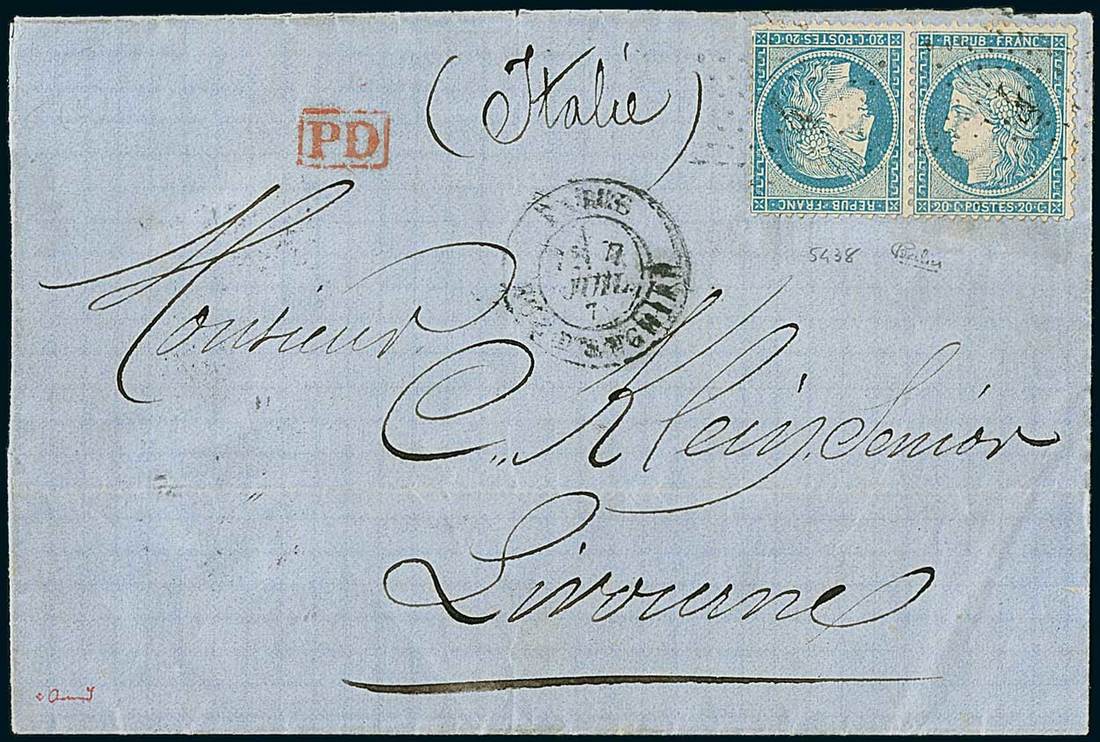 (Italie)
20·C·POSTES·20·C
REPUB·FRANC·
REPUB·FRANC·
20·C·POSTES·20·C
PD
5438
JUIL.
D'ENGHIEN
Monsieur
C. Klein Senior
Livourne